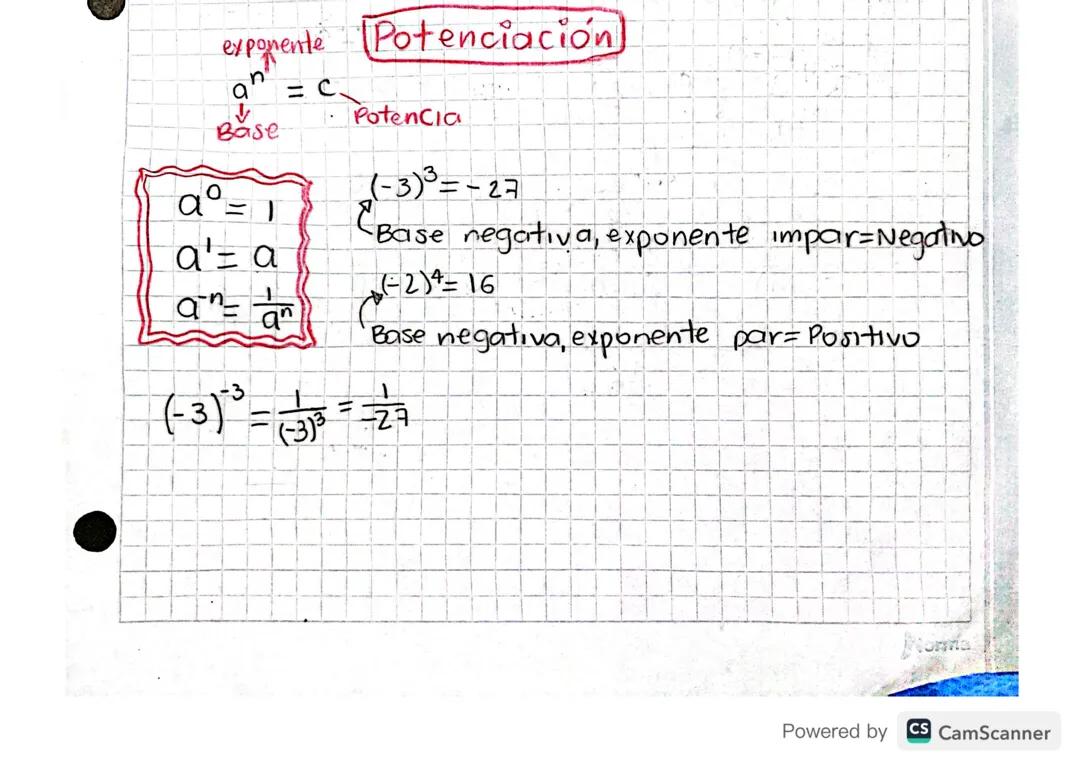 Potenciación
exponente
aⁿ = c
Base
Potencia
a⁰ = 1
a¹ = a
a⁻ⁿ = 1/aⁿ
(-3)³ = - 27
Base negativa, exponente impar = Negativo
(-2)⁴ = 16
Base negativa, exponente par = Positivo
(-3)⁻³ = 1/(-3)³ = 1/-27
Norma
Powered by CS CamScanner